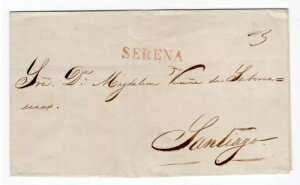 SERENA
3
Sra. Da. Magdalena Vicuña de Suberca=
seaux.
Santiago.